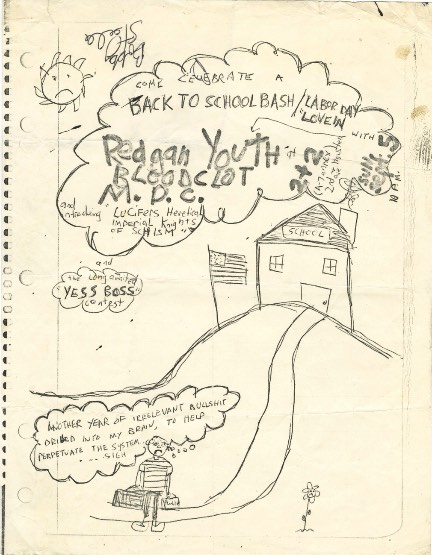 COME CELEBRATE A
BACK TO SCHOOL BASH / LABOR DAY
"LOVE IN" WITH
Reagan Youth at
BLOODCLOT
M.D.C.
2+2
SUN. SEPT 5
and
introducing LUCIFERS Heretical
Imperial Knights
OF SCHISM
and
the long awaited
"YESS BOSS"
contest
SCHOOL
ANOTHER YEAR OF IRRELEVANT BULLSHIT
DRILLED INTO MY BRAIN, TO HELP
PERPETUATE THE SYSTEM
.... SIGH